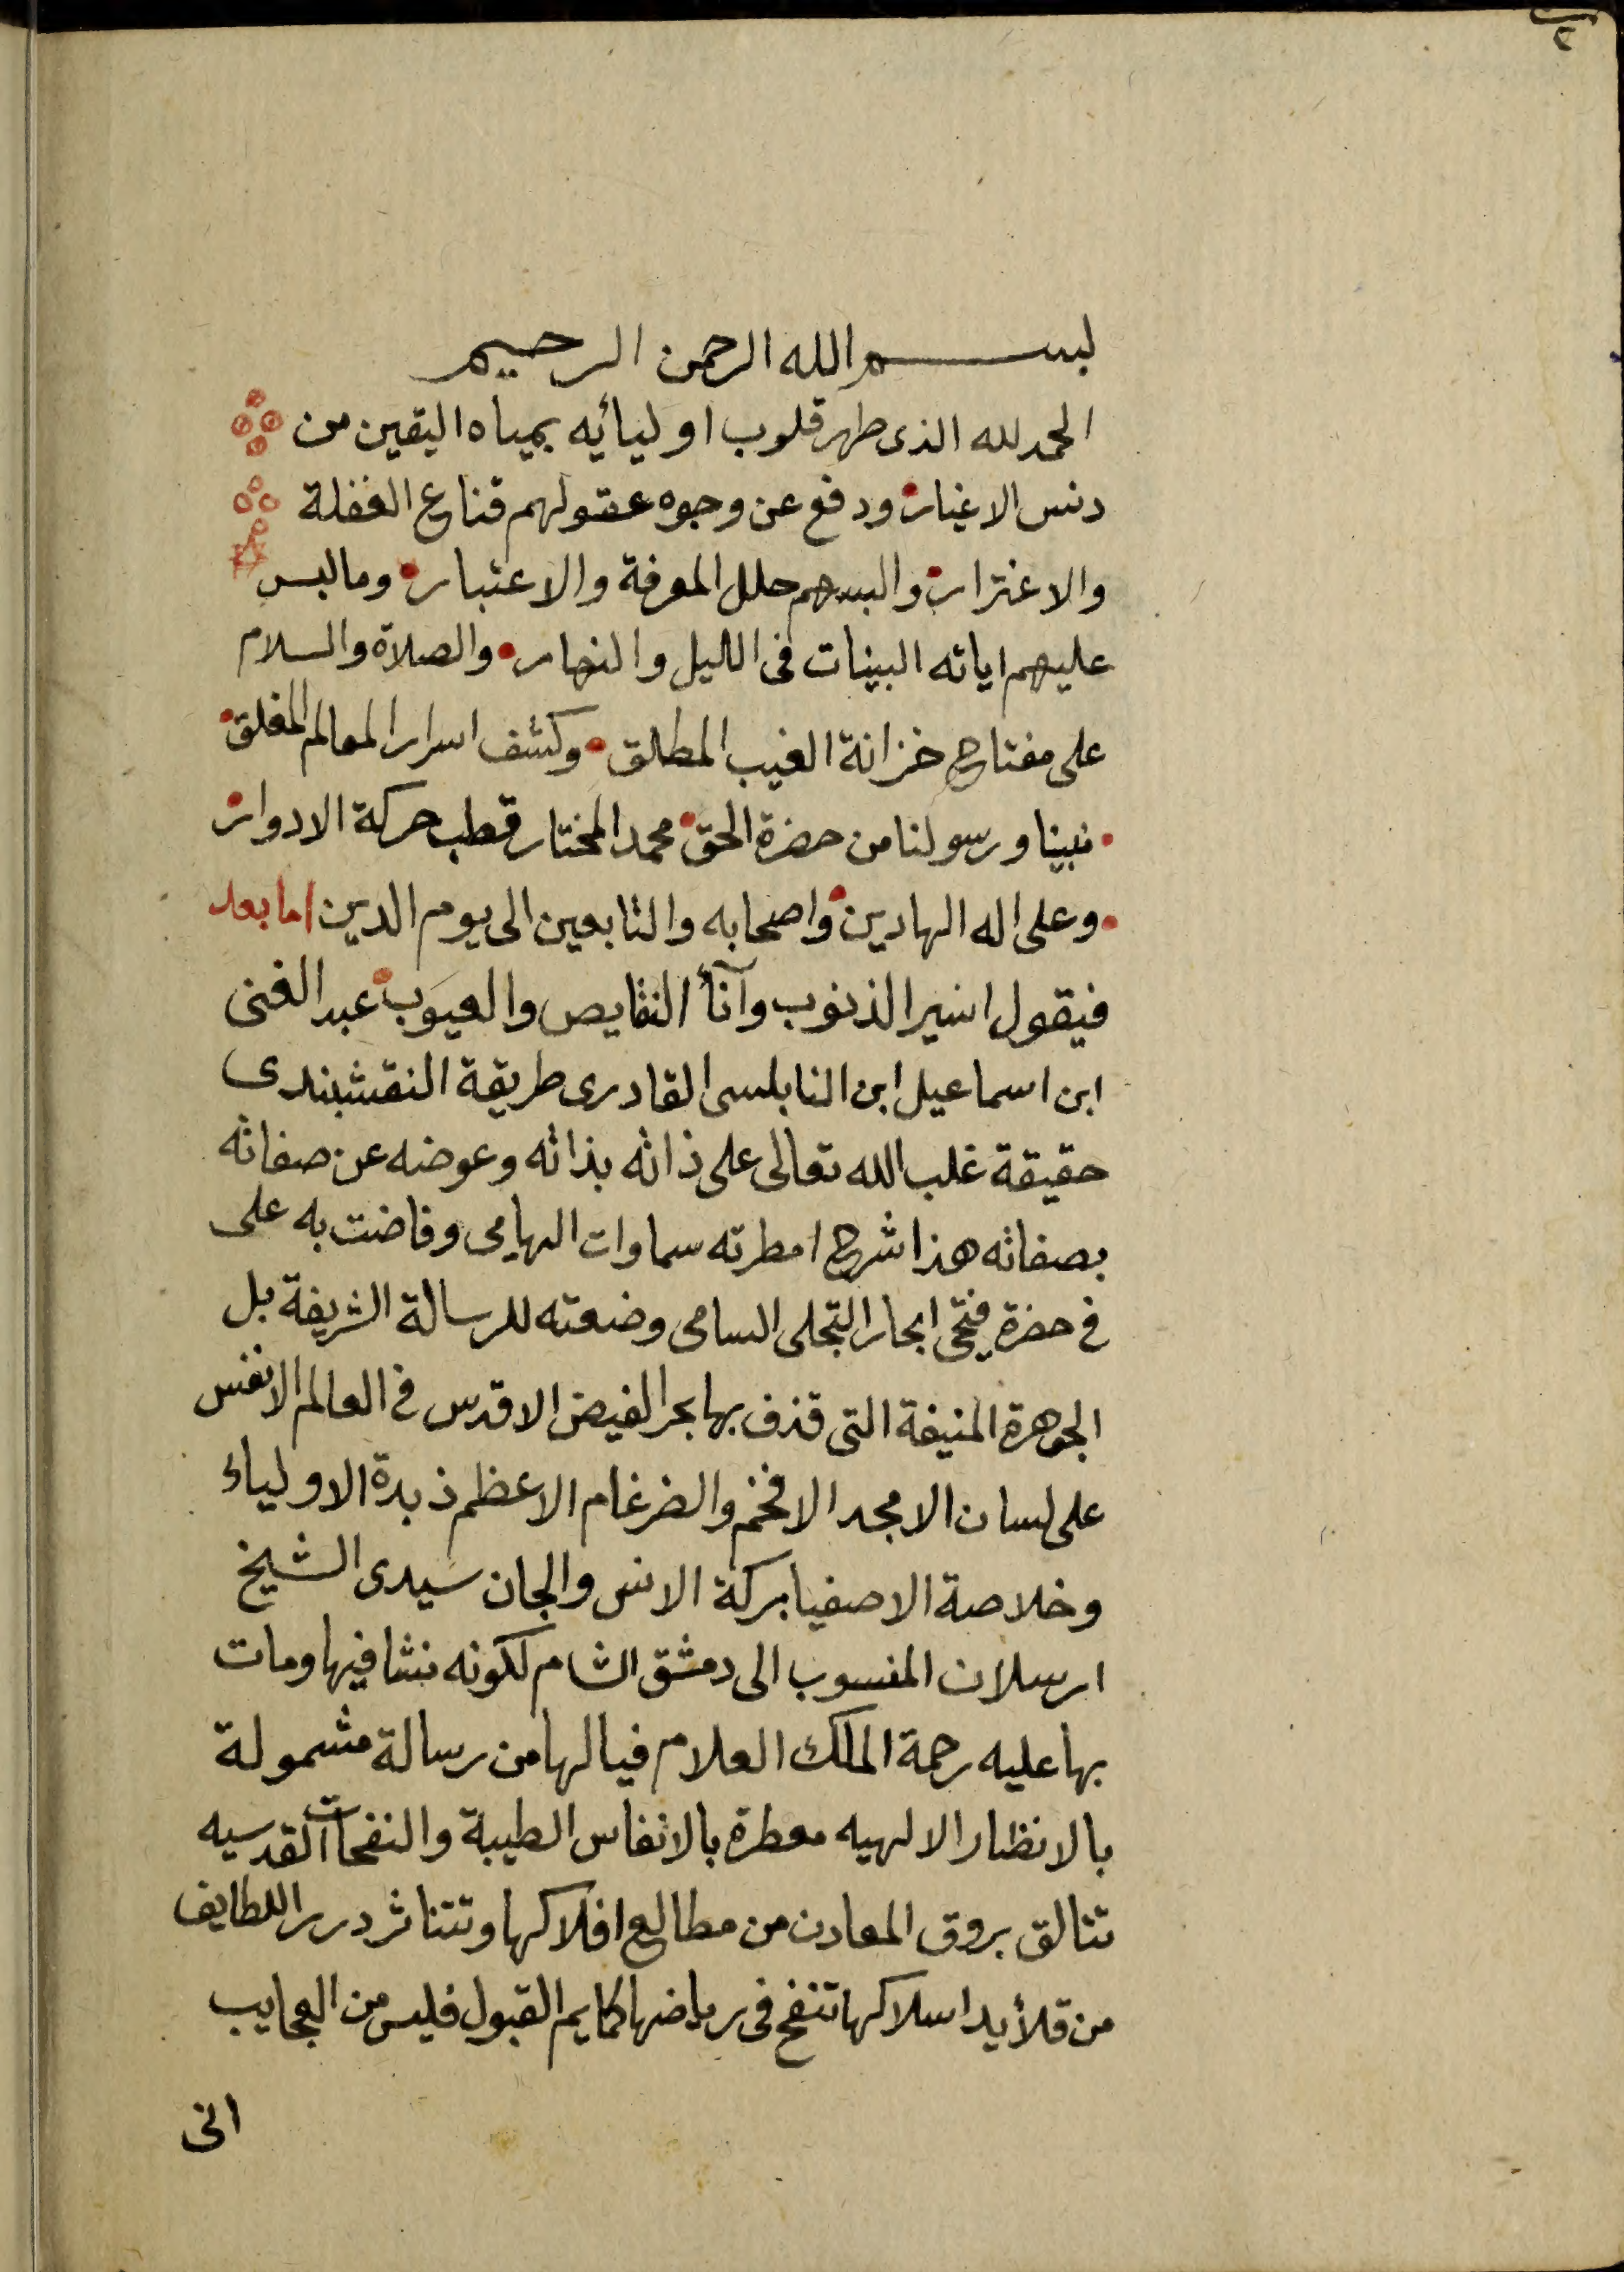 ٢
بسم الله الرحمن الرحيم
الحمد لله الذى طهر قلوب اوليائه بمياه اليقين من
دنس الاغيار ودفع عن وجوه عقولهم قناع الغفلة
والاغترار والبسهم حلل المعرفة والاعتبار وما لبس
عليهم اياته البينات فى الليل والنهار والصلاة والسلام
على مفتاح خزانة الغيب المطلق وكشف اسرار المعالم المغلق
نبينا ورسولنا من حضرة الحق محمد المختار قطب حركة الادوار
وعلى اله الهادين واصحابه والتابعين الى يوم الدين اما بعد
فيقول اسير الذنوب وآنأ النقايص والعيوب عبد الغنى
ابن اسماعيل ابن النابلسى القادرى طريقة النقشبندى
حقيقة غلب الله تعالى على ذاته بذاته وعوضه عن صفاته
بصفاته هذا شرح امطرته سماوات الهامى وفاضت به على
فى حضرة فتحى ابحار التجلى السامى وضعته للرسالة الشريفة بل
الجوهرة المنيفة التى قذف بها بحر الفيض الاقدس فى العالم الانفس
على لسان الامجد الافخم والضرغام الاعظم ذبدة الاولياء
وخلاصة الاصفيا بركة الانس والجان سيدى الشيخ
ارسلان المنسوب الى دمشق الشام لكونه نشا فيها ومات
بها عليه رحمة الملك العلام فيالها من رسالة مشمولة
بالانظار الالهيه معطرة بالانفاس الطيبة والنفحات القدسيه
تتالق بروق المعادن من مطالع افلاكها وتتناثر درر اللطايف
من قلأيد اسلاكها تنفح فى رياضها كمايم القبول فليس من العجايب
انى